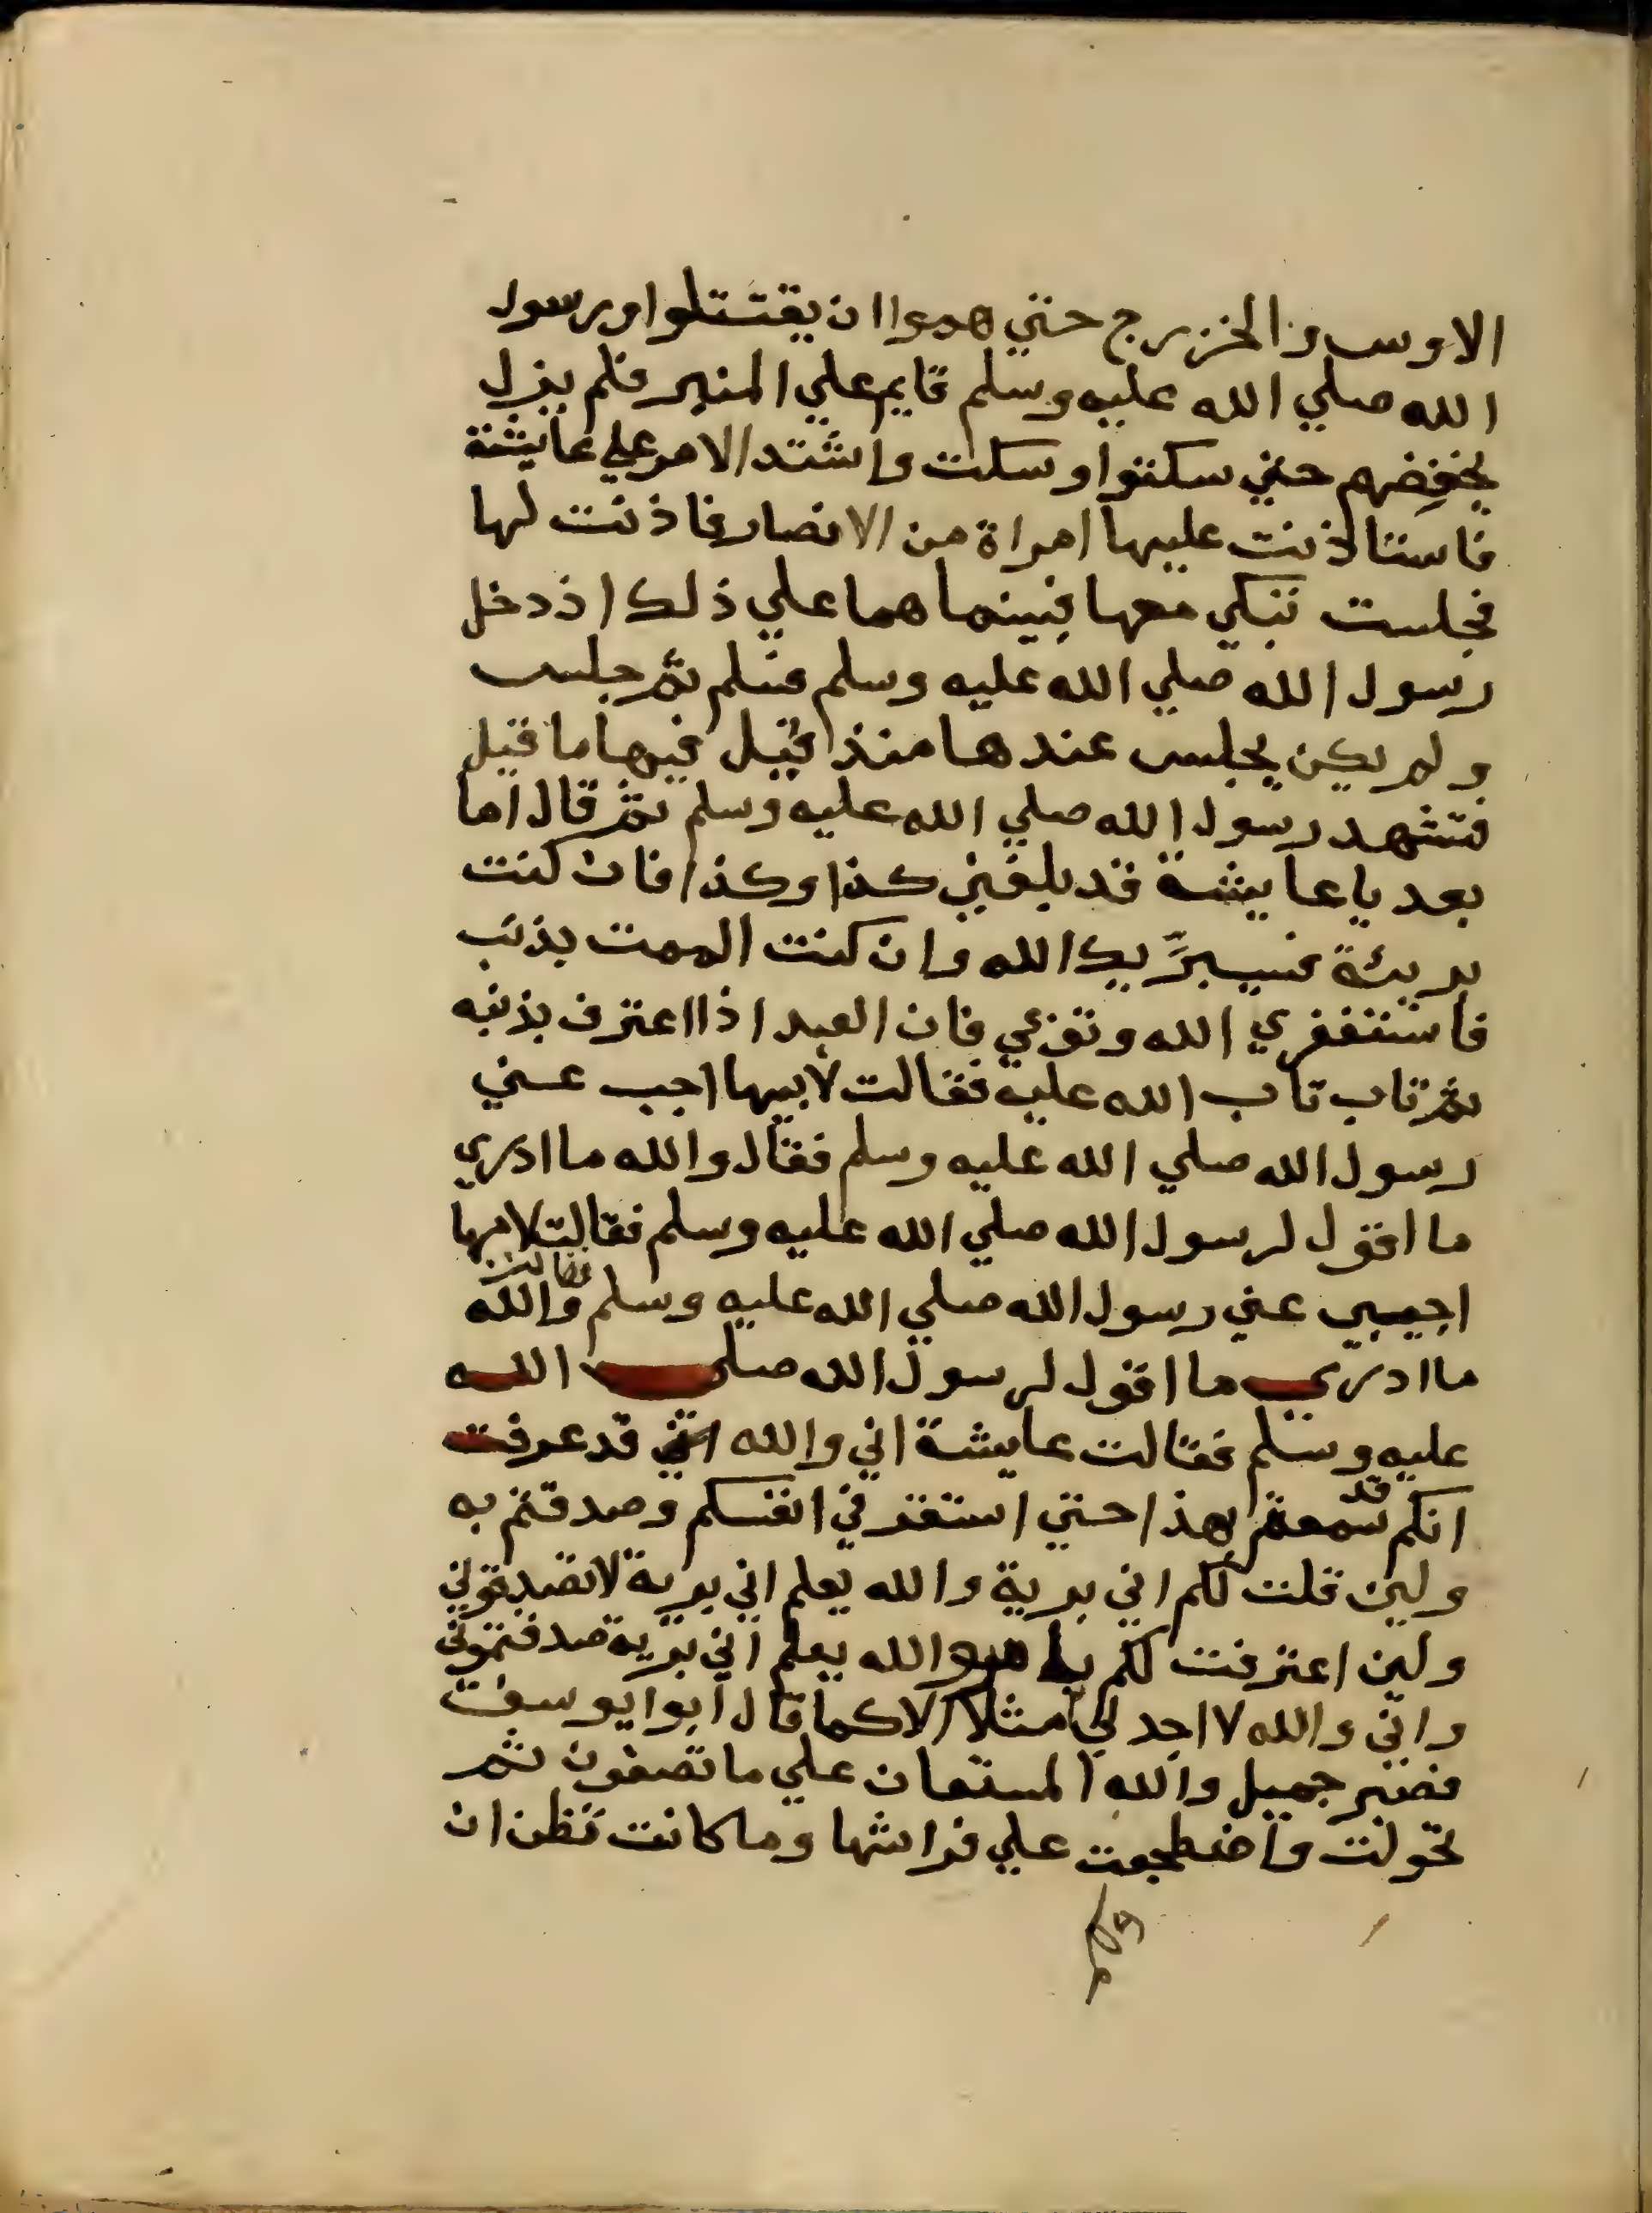 الاوس والخزرج حتي هموا ان يقتتلوا ورسول
الله صلي الله عليه وسلم قايم علي المنبر فلم يزل
يخفضهم حتي سكتوا وسكت واشتد الامر علي عايشة
فاستاذنت عليها امراة من الانصار فاذنت لها
فجلست تبكي معها فبينما هما علي ذلك اذ دخل
رسول الله صلي الله عليه وسلم فسلم ثم جلس
ولم يكن يجلس عندها منذ قيل فيها ما قيل
فتشهد رسول الله صلي الله عليه وسلم ثم قال اما
بعد يا عايشة قد بلغني كذا وكذا فان كنت
بريئة فسيبرّيك الله وان كنت الممت بذنب
فاستغفري الله وتوبي فان العبد اذا اعترف بذنبه
ثم تاب تاب الله عليه فقالت لابيها اجب عني
رسول الله صلي الله عليه وسلم فقال والله ما ادري
ما اقول لرسول الله صلي الله عليه وسلم فقالت لامها
اجيبي عني رسول الله صلي الله عليه وسلم فقالت والله
ما ادري ما اقول لرسول الله صلي الله
عليه وسلم فقالت عايشة اني والله قد عرفت
انكم قد سمعتم بهذا حتي استقر في انفسكم وصدقتم به
ولين قلت لكم اني برية والله يعلم اني برية لا تصدقوني
ولين اعترفت لكم بامر والله يعلم اني برية صدقتموني
واني والله لا اجد لي مثلا الا كما قال ابوا يوسف
فصبر جميل والله المستعان علي ما تصفون ثم
تحولت واضطجعت علي فراشها وما كانت تظن ان